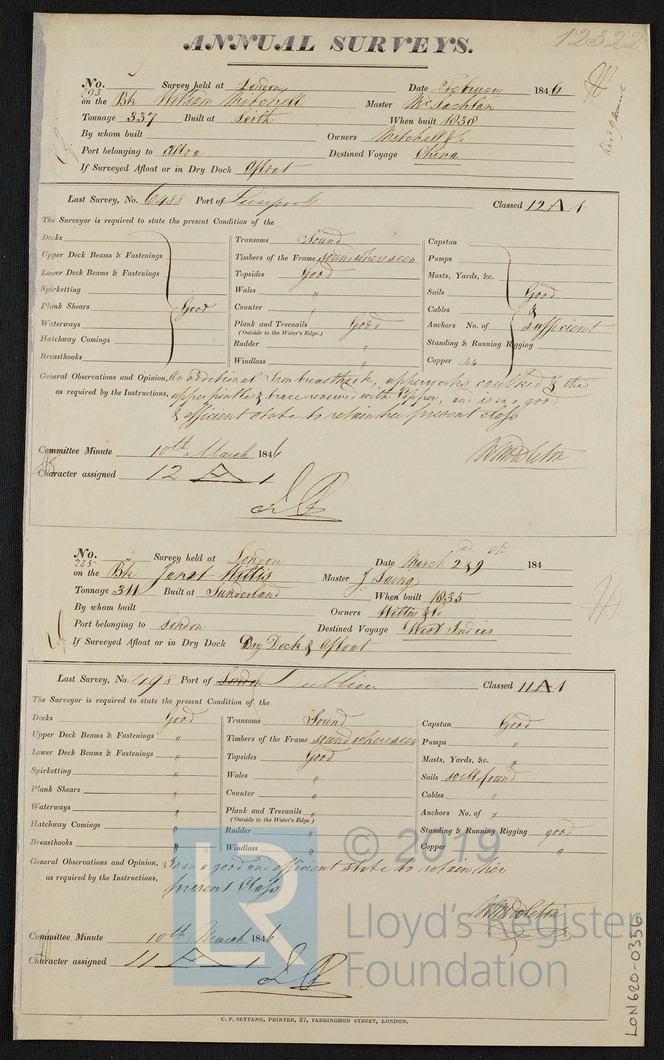 12322
ANNUAL SURVEYS.
No. 293 Survey held at London Date February 1846
on the Bk Mitchell Master McLachlan
Tonnage 337 Built at Leith When built 1838
By whom built Owners Mitchell & Co
Port belonging to Alloa Destined Voyage China
If Surveyed Afloat or in Dry Dock Afloat
Last Survey, No. 6988 Port of Liverpool Classed 12 A 1
The Surveyor is required to state the present Condition of the
Decks
Upper Deck Beams & Fastenings
Lower Deck Beams & Fastenings
Spirketting
Plank Shears Good
Waterways
Hatchway Comings
Breasthooks
Transoms Sound
Timbers of the Frame sound where seen
Topsides Good
Wales "
Counter "
Plank and Treenails Good
(Outside to the Water's Edge.)
Rudder "
Windlass "
Capstan
Pumps
Masts, Yards, &c.
Sails Good
Cables &
Anchors No. of sufficient
Standing & Running Rigging
Copper
General Observations and Opinion, An additional Iron breasthook, upperworks caulked & the
as required by the Instructions, renewed with Copper, and is in a good
& efficient state to retain her present class
Committee Minute 10th March 1846
Character assigned 12 A 1
No. 235 Survey held at London Date March 2 & 9 184
on the Bk Janet Master J Laing
Tonnage 311 Built at Sunderland When built 1835
By whom built Owners & Co
Port belonging to London Destined Voyage West Indies
If Surveyed Afloat or in Dry Dock Dry Dock & Afloat
Last Survey, No. 498 Port of London Dublin Classed 11 A 1
The Surveyor is required to state the present Condition of the
Decks Good
Upper Deck Beams & Fastenings "
Lower Deck Beams & Fastenings "
Spirketting "
Plank Shears "
Waterways "
Hatchway Comings "
Breasthooks "
Transoms Sound
Timbers of the Frame sound where seen
Topsides Good
Wales "
Counter "
Plank and Treenails "
(Outside to the Water's Edge)
Rudder "
Windlass "
Capstan Good
Pumps "
Masts, Yards, &c. "
Sails well found
Cables "
Anchors No. of "
Standing & Running Rigging good
Copper "
General Observations and Opinion, Is in a good and efficient state to retain her
as required by the Instructions, present Class
Committee Minute 10th March 1846
Character assigned 11 A 1
C. F. SEYFANG, PRINTER, 57, FARRINGDON STREET, LONDON.
LON620-0356
LR
© 2019
Lloyd's Register
Foundation